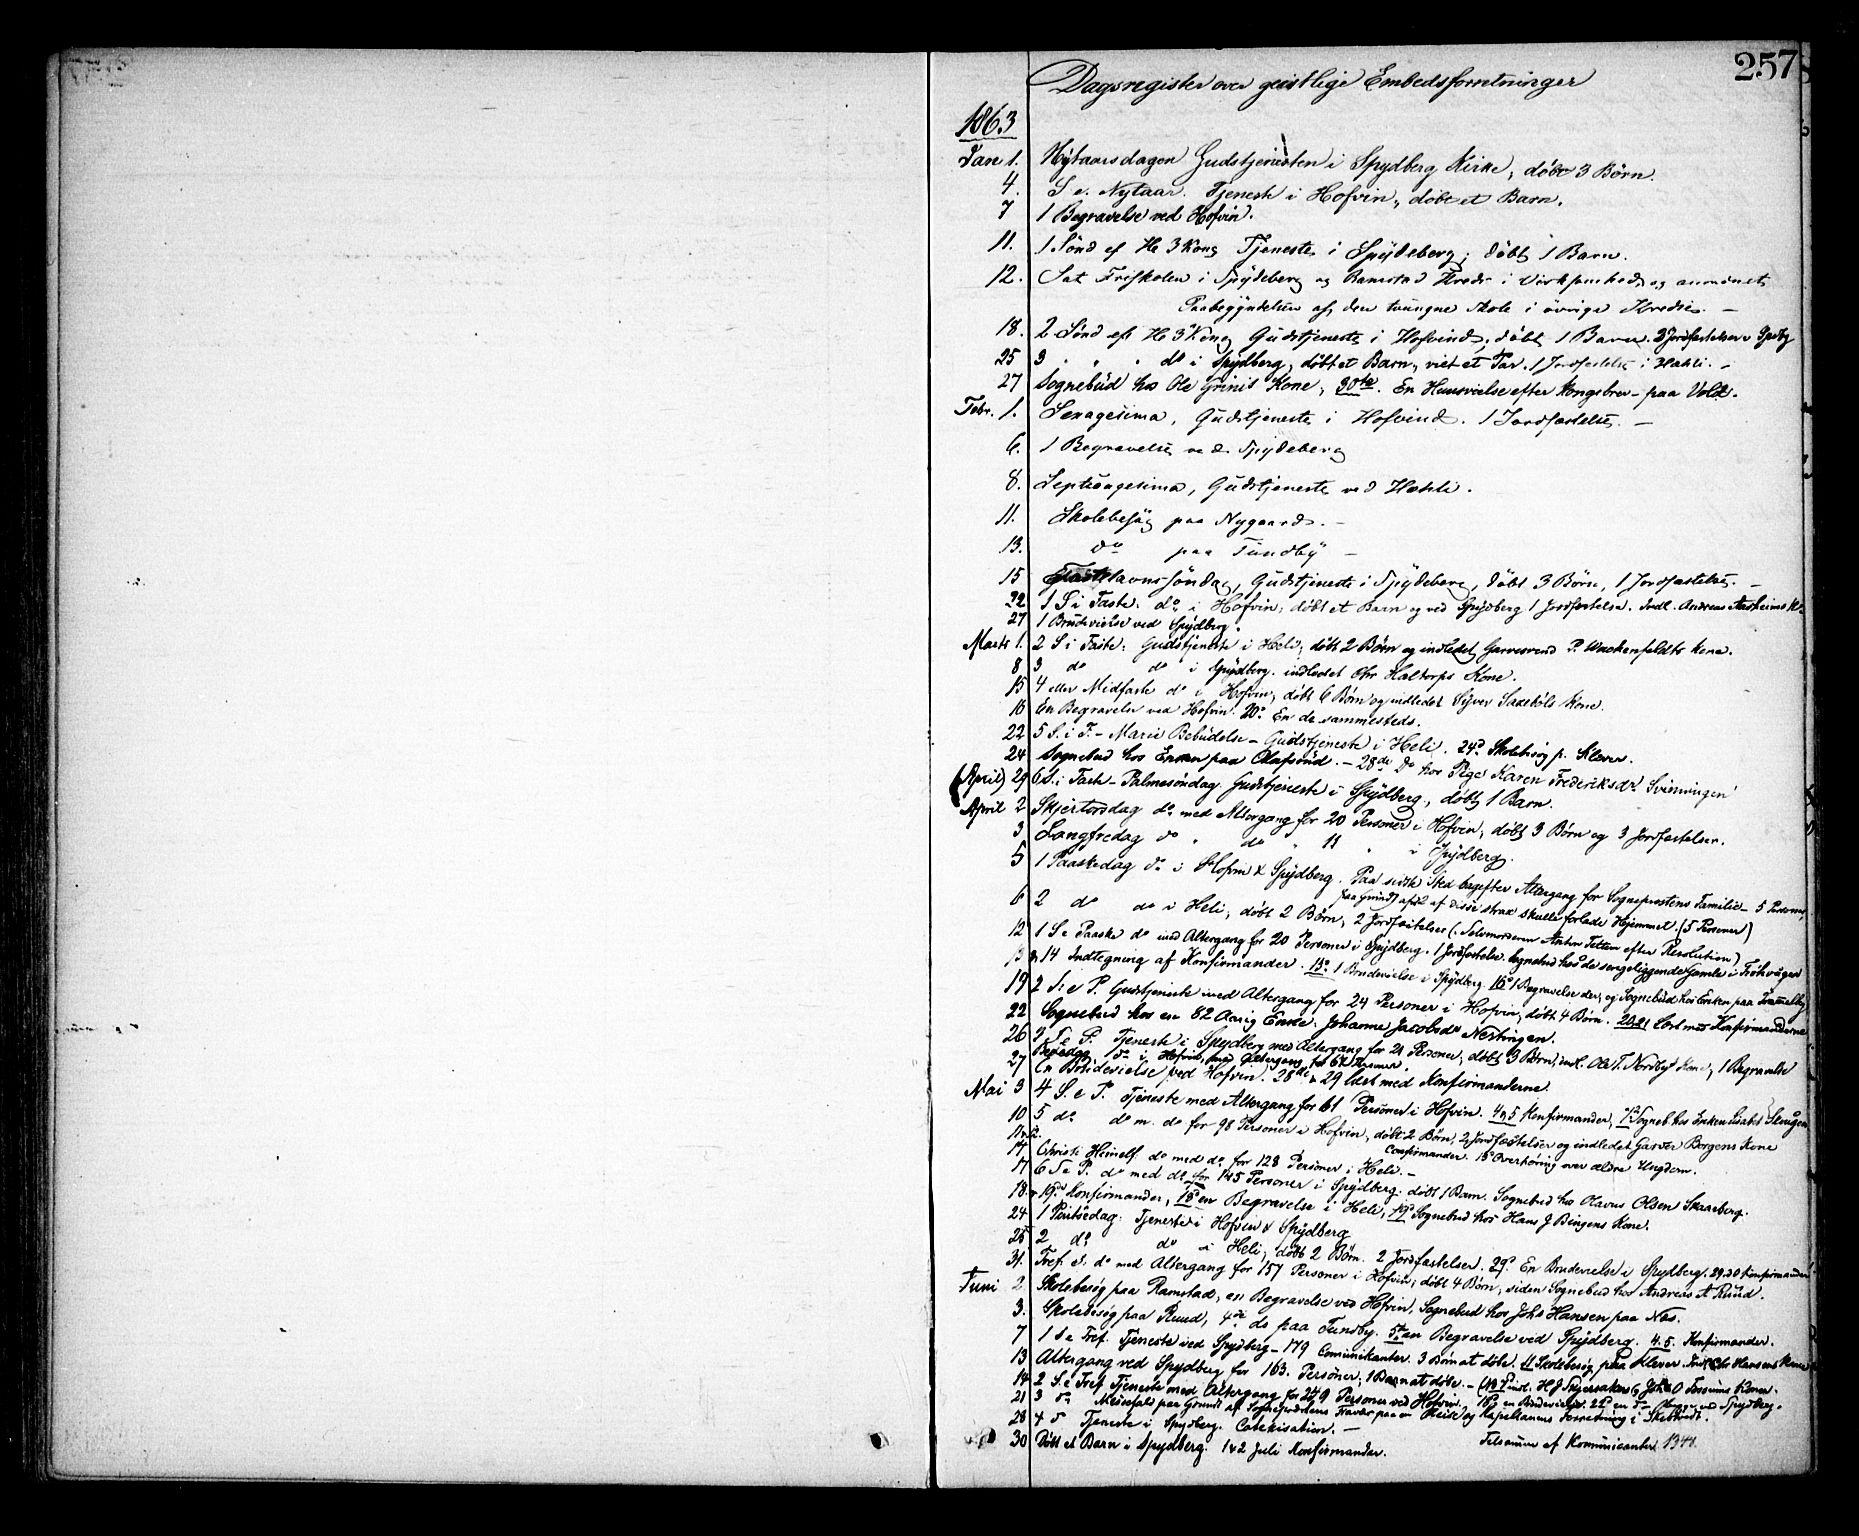 257
Dagsregister over geistlige Embedsforretninger
1863
Jan 1. Nytaarsdagen Gudstjenesten i Spydberg Kirke, døbt 3 Børn.
4. S e. Nytaar. Tjeneste i Hofvin, døbt et Barn.
7 1 Begravelse ved Hofvin.
11. 1 Sønd ef He 3 Kong Tjeneste i Spydeberg, døbt 1 Barn.
12. Sat Friskolen i Spydeberg og Ramstad Kreds i Virksomhed og
Paabegyndelsen af den tvungne Skole i øvrige Kredse. —
18. 2 Sønd eft H 3 Kong Gudstjeneste i Hofvind, døbt 1 Barn. 2 Jordfæstelser i Spdbg
25 3 " " " do i Spydberg, døbt et Barn, viet et Par. 1 Jordfæstelse i Hæhli. —
27 Sognebud hos Ole Grinis Kone, 30te. En Huusvielse efter Kongebrev - paa Vold.
Febr. 1. Sexagesima, Gudstjeneste i Hofvind. 1 Jordfæstelse. —
6. 1 Begravelse ved Spydeberg
8. Septuagesima, Gudstjeneste ved Hæhli.
11. Skolebesøg paa Nygaard. —
13. do paa Tundby —
15 Fastelavns-Søndag, Gudstjeneste i Spydeberg, døbt 3 Børn, 1 Jordfæstelse. —
22 1 S i Faste. do i Hofvin, døbt et Barn og ved Spydberg 1 Jordfæstelse. Indl. Andreas
27 1 Brudevielse ved Spydberg.
Marts 1. 2 S i Faste: Gudstjeneste i Heli, døbt 2 Børn og indledet P. Wackenfeldts Kone.
8 3 do do i Spydberg. indledet Chr Haltorps Kone.
15 4 eller Midfaste do i Hofvin, døbt 6 Børn og indledet Syver Kone.
16 En Begravelse ved Hofvin. 20o En do sammesteds.
22 5 S. i F. - Mariæ Bebudelse - Gudstjeneste i Heli. 24o Skolebesøg p. Klever.
24 Sognebud hos Enken paa Olafsrud. - 28de Do hos Pige Karen Frederiksdr Svinningen
(April) 29 6 S. i Fast - Palmesøndag Gudstjeneste i Spydberg, døbt 1 Barn.
April 2 Skjertorsdag do med Altergang for 20 Personer i Hofvin, døbt 3 Børn og 3 Jordfæstelser.
3 Langfredag do " do " 11 " i Spydberg.
5 1 Paaskedag do i Hofvin & Spydberg. Paa sidste Sted bagefter Altergang for Sognepræstens Familie - 5 Personer,
paa Grund af at 2 af disse strax skulle forlade Hjemmet. (5 Personer)
6 2 do do i Heli, døbt 2 Børn, 2 Jordfæstelser (. Selvmorderen Anton efter Resolution)
12 1 S e Paaske do med Altergang for 20 Personer i Spydberg. 1 Jordfæstelse. Sognebud hos de sengeliggende Gamle i
13 & 14 Indtegning af Konfirmander. 15o 1 Brudevielse i Spydberg. 16o 1 Begravelse der, og Sognebud hos Enken paa
19 2 S. e P. Gudstjeneste med Altergang for 24 Personer i Hofvin, døbt 4 Børn. 20, 21 læst med Konfirmanderne
22 Sognebud hos en 82 Aarig Enke. Johanne Jacobsdr Nestingen.
26 3 S e P. Tjeneste i Spydberg med Altergang for 21 Personer, døbt 3 Børn, ind. Ole T. Nordby Kone, 1 Begravelse
Bededag, do i Hofvin, med Altergang for 62 Personer.
27 En Brudevielse ved Hofvin. 28de & 29 læst med Konfirmanderne.
Mai 3 4 S. e P. Tjeneste med Altergang for 61 Personer i Hofvin. 4 og 5 Konfirmander, 7o Sogneb. hos Enken Lisabet
10 5 do do m. do for 98 Personer i Hofvin, døbt 2 Børn, 2 Jordfæstelser og indledet Garver Borgens Kone
11, 12. Confirmander. 15o Overhøring over ældre Ungdom.
14 Christi Himelf. do med do for 128 Personer i Heli. —
17 6 S e P. do med do for 145 Personer i Spydberg. døbt 1 Barn. Sognebud hos Olavus Olsen Skaarberg.
18. & 19de Konfirmander, 18o en Begravelse i Heli, 19o Sognebud hos Hans J Bingens Kone.
24 1 Pintsedag. Tjeneste i Hofvin & Spydberg
25 2 do do i Heli, døbt 2 Børn. 2 Jordfæstelser. 29o. En Brudevielse i Spydberg. 29. 30 Konfirmander
31. Tref. S. do med Altergang for 157 Personer i Hofvin, døbt 4 Børn, siden Sognebud hos Andreas A Ruud.
Juni 2 Skolebesøg paa Ramstad, en Begravelse ved Hofvin, Sognebud hos Johs Hansen paa Næs.
3. Skolebesøg paa Ruud, 4de do paa Tundby. 5te en Begravelse ved Spydberg. 4. 5. Konfirmander.
7 1 S e Tref. Tjeneste ved Spydberg - 179 Comunikanter. 3 Børn at døbe. 11 Skolebesøg paa Klever.
13 Altergang ved Spydberg for 163. Personer, 1 Barn at døbe. -
14 2 S. e Tref Tjeneste med Altergang for 249 Personer ved Hofvin,
21 3 do Messefald paa Grund af Sognepræstens Fravær paa en Reise og Kapellanens Forretning i
28 4 do Tjeneste i Spydberg. Catekisation. —
30 Døbt et Barn i Spydberg. 1 & 2 Juli Konfirmander. Tilsammen af Kommunicanter 1341.